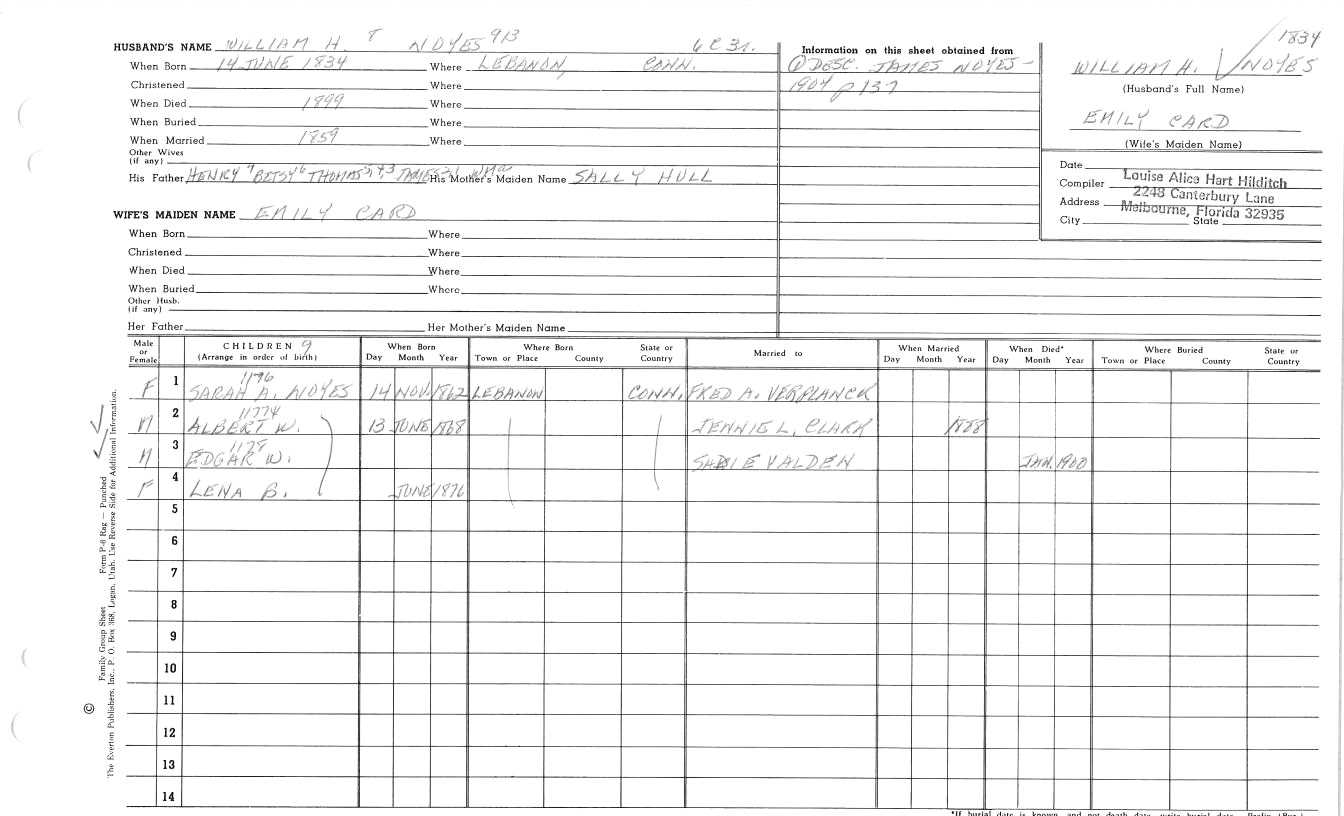 HUSBAND'S NAME WILLIAM H. 8 NOYES 913
When Born 14 JUNE 1834 Where LEBANON, CONN.
Christened Where
When Died 1899 Where
When Buried Where
When Married 1859 Where
Other Wives
(if any)
His Father HENRY 7 BETSY 6 THOMAS 5,4,3 JAMES His Mother's Maiden Name SALLY HULL
WIFE'S MAIDEN NAME EMILY CARD
When Born Where
Christened Where
When Died Where
When Buried Where
Other Husb.
(if any)
Her Father Her Mother's Maiden Name
Information on this sheet obtained from
① DESC. JAMES NOYES -
1904 p 137
1834
WILLIAM H. NOYES
(Husband's Full Name)
EMILY CARD
(Wife's Maiden Name)
Date
Compiler Louise Alice Hart Hilditch
Address 2248 Canterbury Lane
Melbourne, Florida 32935
City State
Male or Female CHILDREN 9 (Arrange in order of birth) When Born Day Month Year Where Born Town or Place County State or Country Married to When Married Day Month Year When Died* Day Month Year Where Buried Town or Place County State or Country
1176
F 1 SARAH A. NOYES 14 NOV. 1862 LEBANON CONN. FRED A. VERPLANCK
1177
M 2 ALBERT W. 13 JUNE 1868 JENNIE L. CLARK 1888
1178
M 3 EDGAR W. SADIE VALDEN JAN. 1900
F 4 LENA B. JUNE 1876
5
6
7
8
9
10
11
12
13
14
© Family Group Sheet Form P-8 Rag — Punched
The Everton Publishers, Inc., P. O. Box 368, Logan, Utah. Use Reverse Side for Additional Information.
*If burial date is known and not death date, write burial date.